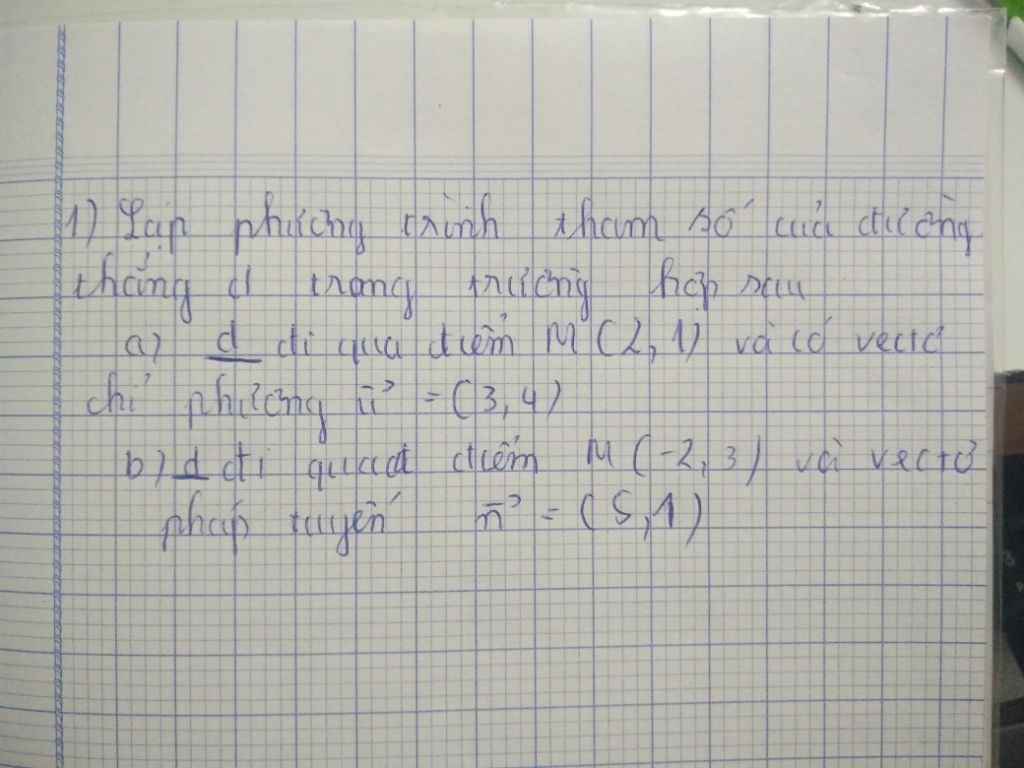 1) Lập phương trình tham số của đường
thẳng d trong trường hợp sau
a) d đi qua điểm M (2, 1) và có vectơ
chỉ phương u→ = (3, 4)
b) d đi qua điểm M (-2, 3) và vectơ
pháp tuyến n→ = (5, 1)